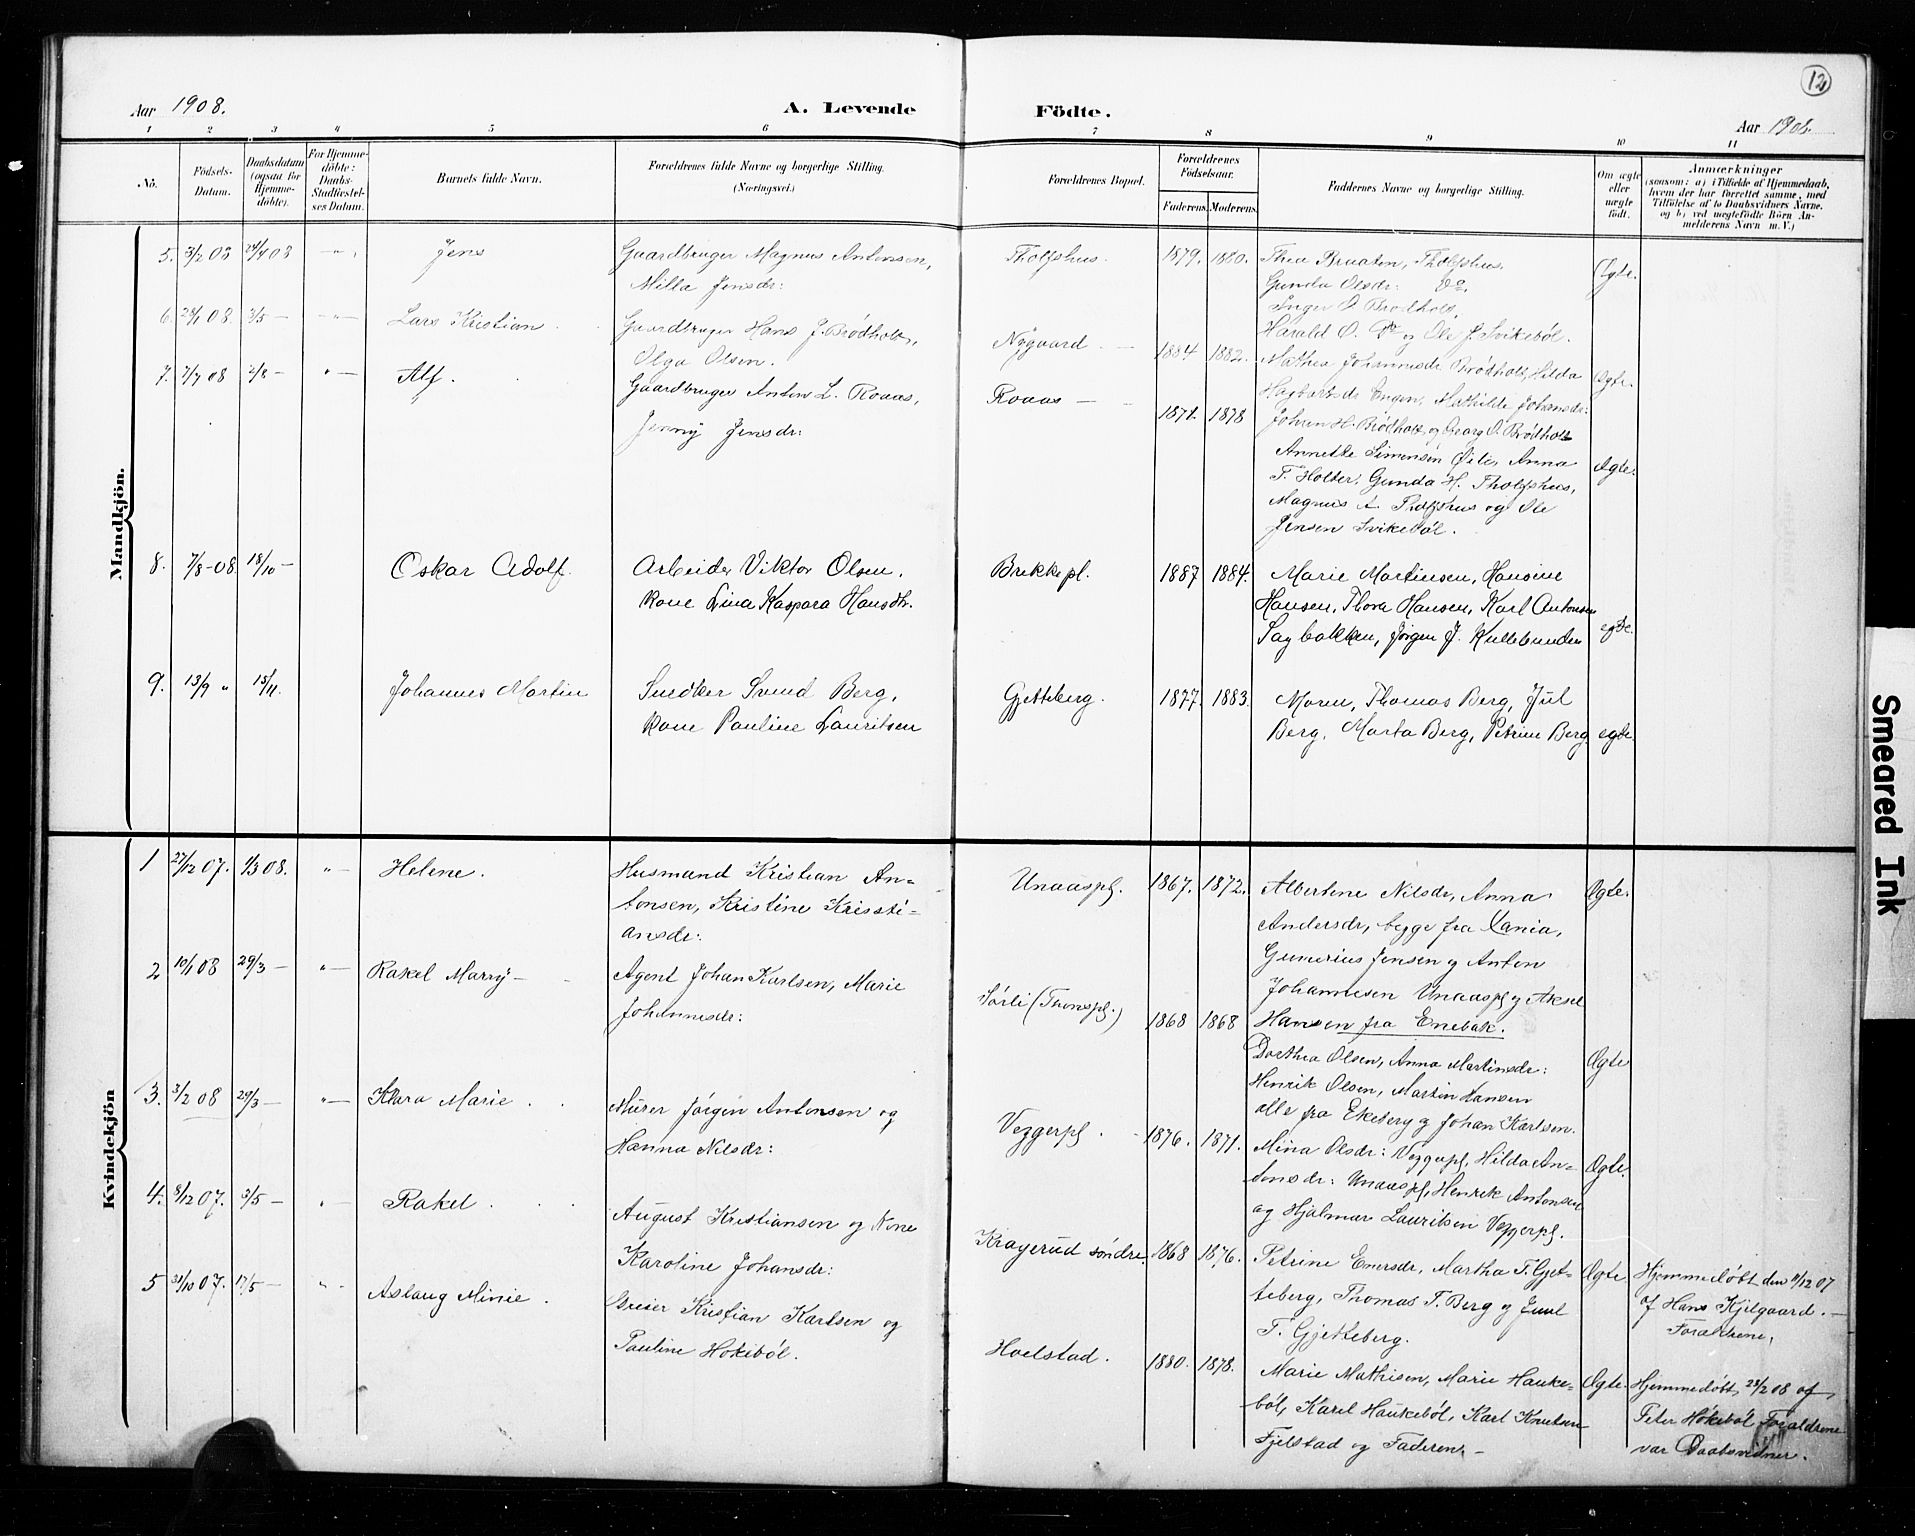 12
Aar 1908. A. Levende Födte. Aar 1908.
1 2 3 4 5 6 7 8 9 10 11
No.
Födsels-
Datum.
Daabsdatum
(ogsaa for
Hjemme-
döbte).
For Hjemme-
döbte:
Daabs-
Stadfæstel-
ses Datum.
Barnets fulde Navn.
Forældrenes fulde Navne og borgerlige Stilling.
(Næringsvei.)
Forældrenes Bopæl.
Forældrenes
Födselsaar.
Faderens. Moderens.
Faddernes Navne og borgerlige Stilling.
Om ægte
eller
uægte
födt.
Anmærkninger
(saasom: a) i Tilfælde af Hjemmedaab,
hvem der har forrettet samme, med
Tilföielse af to Daabsvidners Navne,
og b) ved uægtefödte Börn An-
melderens Navn m. V.)
Mandkjön.
5. 3/2 08 24/4 08 -"- Jens
Gaardbruger Magnus Antonsen,
Milla Jensdr:
Tholfshus. 1879. 1880.
Thea Braaten, Tholfshus.
Gunda Olsdr: Do.
Inger O Brødholt,
Harald O. Do og Ole J. Svikebøl.
Ægte.
6. 29/1 08. 3/5 - -"- Lars Kristian
Gaardbruger Hans J. Brødholt,
Olga Olsen.
Nygaard. 1884 1882.
Mathea Johannesdr Brødholt, Hilda
Hagbartsdr Engen, Mathilde Johansdr:
Johan H. Brødholt og Georg O. Brødholt
Ægte.
7. 7/7 08 2/8 - "- Alf.
Gaardbruger Anton L. Roaas,
Jenny Jensdr:
Roaas - 1871. 1878
Annette Simensen Øiter, Anna
T. Holter, Gunda H. Tholfshus,
Magnus A. Tholfshus og Ole
Jensen Svikebøl.
Ægte.
8. 7/8-08 18/10 - Oskar Adolf.
Arbeider Viktor Olsen.
kone Lina Kaspara Hansdtr.
Brekkepl. 1887 1884.
Marie Martinsen, Hansine
Hansen, Thora Hansen, Karl Antonsen
Sagbakken, Jørgen J. Kullebunden
egte.
9. 13/9 " 15/11. Johannes Martin
Snedker Svend Berg,
kone Pauline Lauritsen
Gjetteberg. 1877. 1883.
Moren, Thomas Berg, Jul
Berg, Marta Berg, Petrine Berg
egte.
Kvindekjön
1 27/12 07. 1/3 08. "- Helene.
Husmand Kristian An-
tonsen, Kristine Kristi-
ansdr:
Unaaspl. 1867. 1872.
Albertine Nilsdr, Anna
Andersdr, begge fra Xania,
Gunerius Jensen og Anton
Johannesen Unaaspl og Aksel
Hansen fra Enebak.
Ægte.
2 10/1 08 29/3 - "- Rakel Marry -
Agent Johan Karlsen, Marie
Johannesdr:
Sørli (Thonspl.) 1868 1868
Dorthea Olsen, Anna Martinsdr:
Henrik Olsen, Martin Hansen
alle fra Ekeberg og Johan Karlsen.
Ægte
3. 3/2 08 29/3 - "- Klara Marie.
Murer Jörgen Antonsen og
Hanna Nilsdr:
Veggerpl. 1876. 1871.
Mina Olsdr: Veggerpl, Hilda An-
tonsdr: Unaaspl, Henrik Antonsen
og Hjalmar Lauritsen Veggerpl.
Ægte.
4. 8/12 07. 3/5 - "- Rakel.
August Kristiansen og Kone
Karoline Johansdr:
Kragerud søndre. 1868 1876.
Petrine Enersdr, Martha T. Gjet-
teberg, Thomas T. Berg og Juul
T. Gjetteberg.
Ægte
Hjemmedøbt den 11/12 07
af Hans Kjelgaard. -
Forældrene.
5 31/10 07. 17/5 - "- Aslaug Minie.
Kristian Karlsen og
Pauline Hokebøl.
Hoelstad. 1880. 1878.
Marie Mathisen, Marie Hauke-
böl, Karel Haukeböl, Karl Knutsen
Fjelstad og Faderen. -
Ægte.
Hjemmedøbt 23/2 08 af
Peter Hökeböl Forældrene
var Daabsvidner.
Smeared Ink